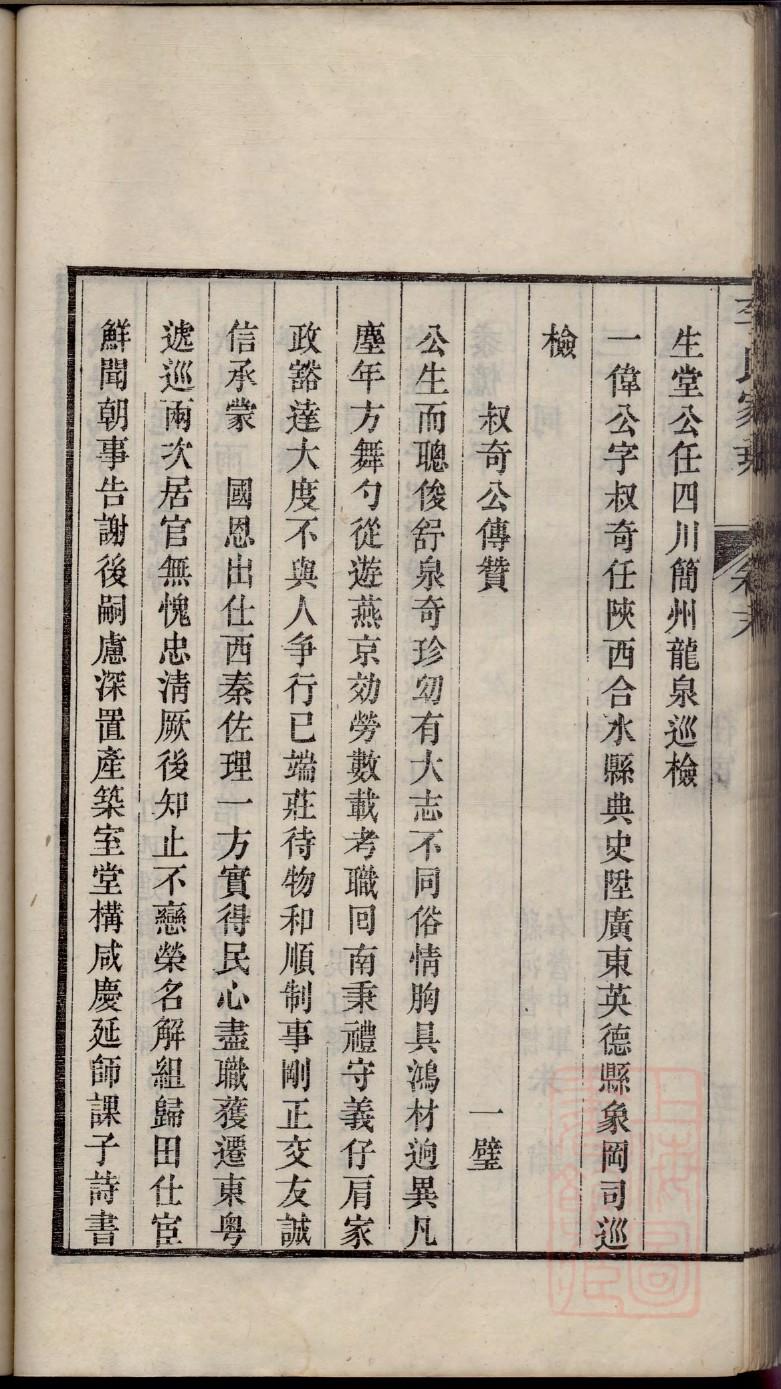 李氏家乘 卷末
生堂公任四川簡州龍泉巡檢
一偉公字叔奇任陝西合水縣典史陞廣東英德縣象岡司巡
檢
叔奇公傳贊 一璧
公生而聰俊舒泉奇珍㓜有大志不同俗情胸具鴻材逈異凡
塵年方舞勺從遊燕京効勞數載考職回南秉禮守義仔肩家
政豁達大度不與人爭行已端莊待物和順制事剛正交友誠
信承蒙 國恩出仕西秦佐理一方實得民心盡職獲遷東粤
遞巡兩次居官無愧忠淸厥後知止不戀榮名解組歸田仕宦
鮮聞朝事告謝後嗣慮深置產築室堂構咸慶延師課子詩書